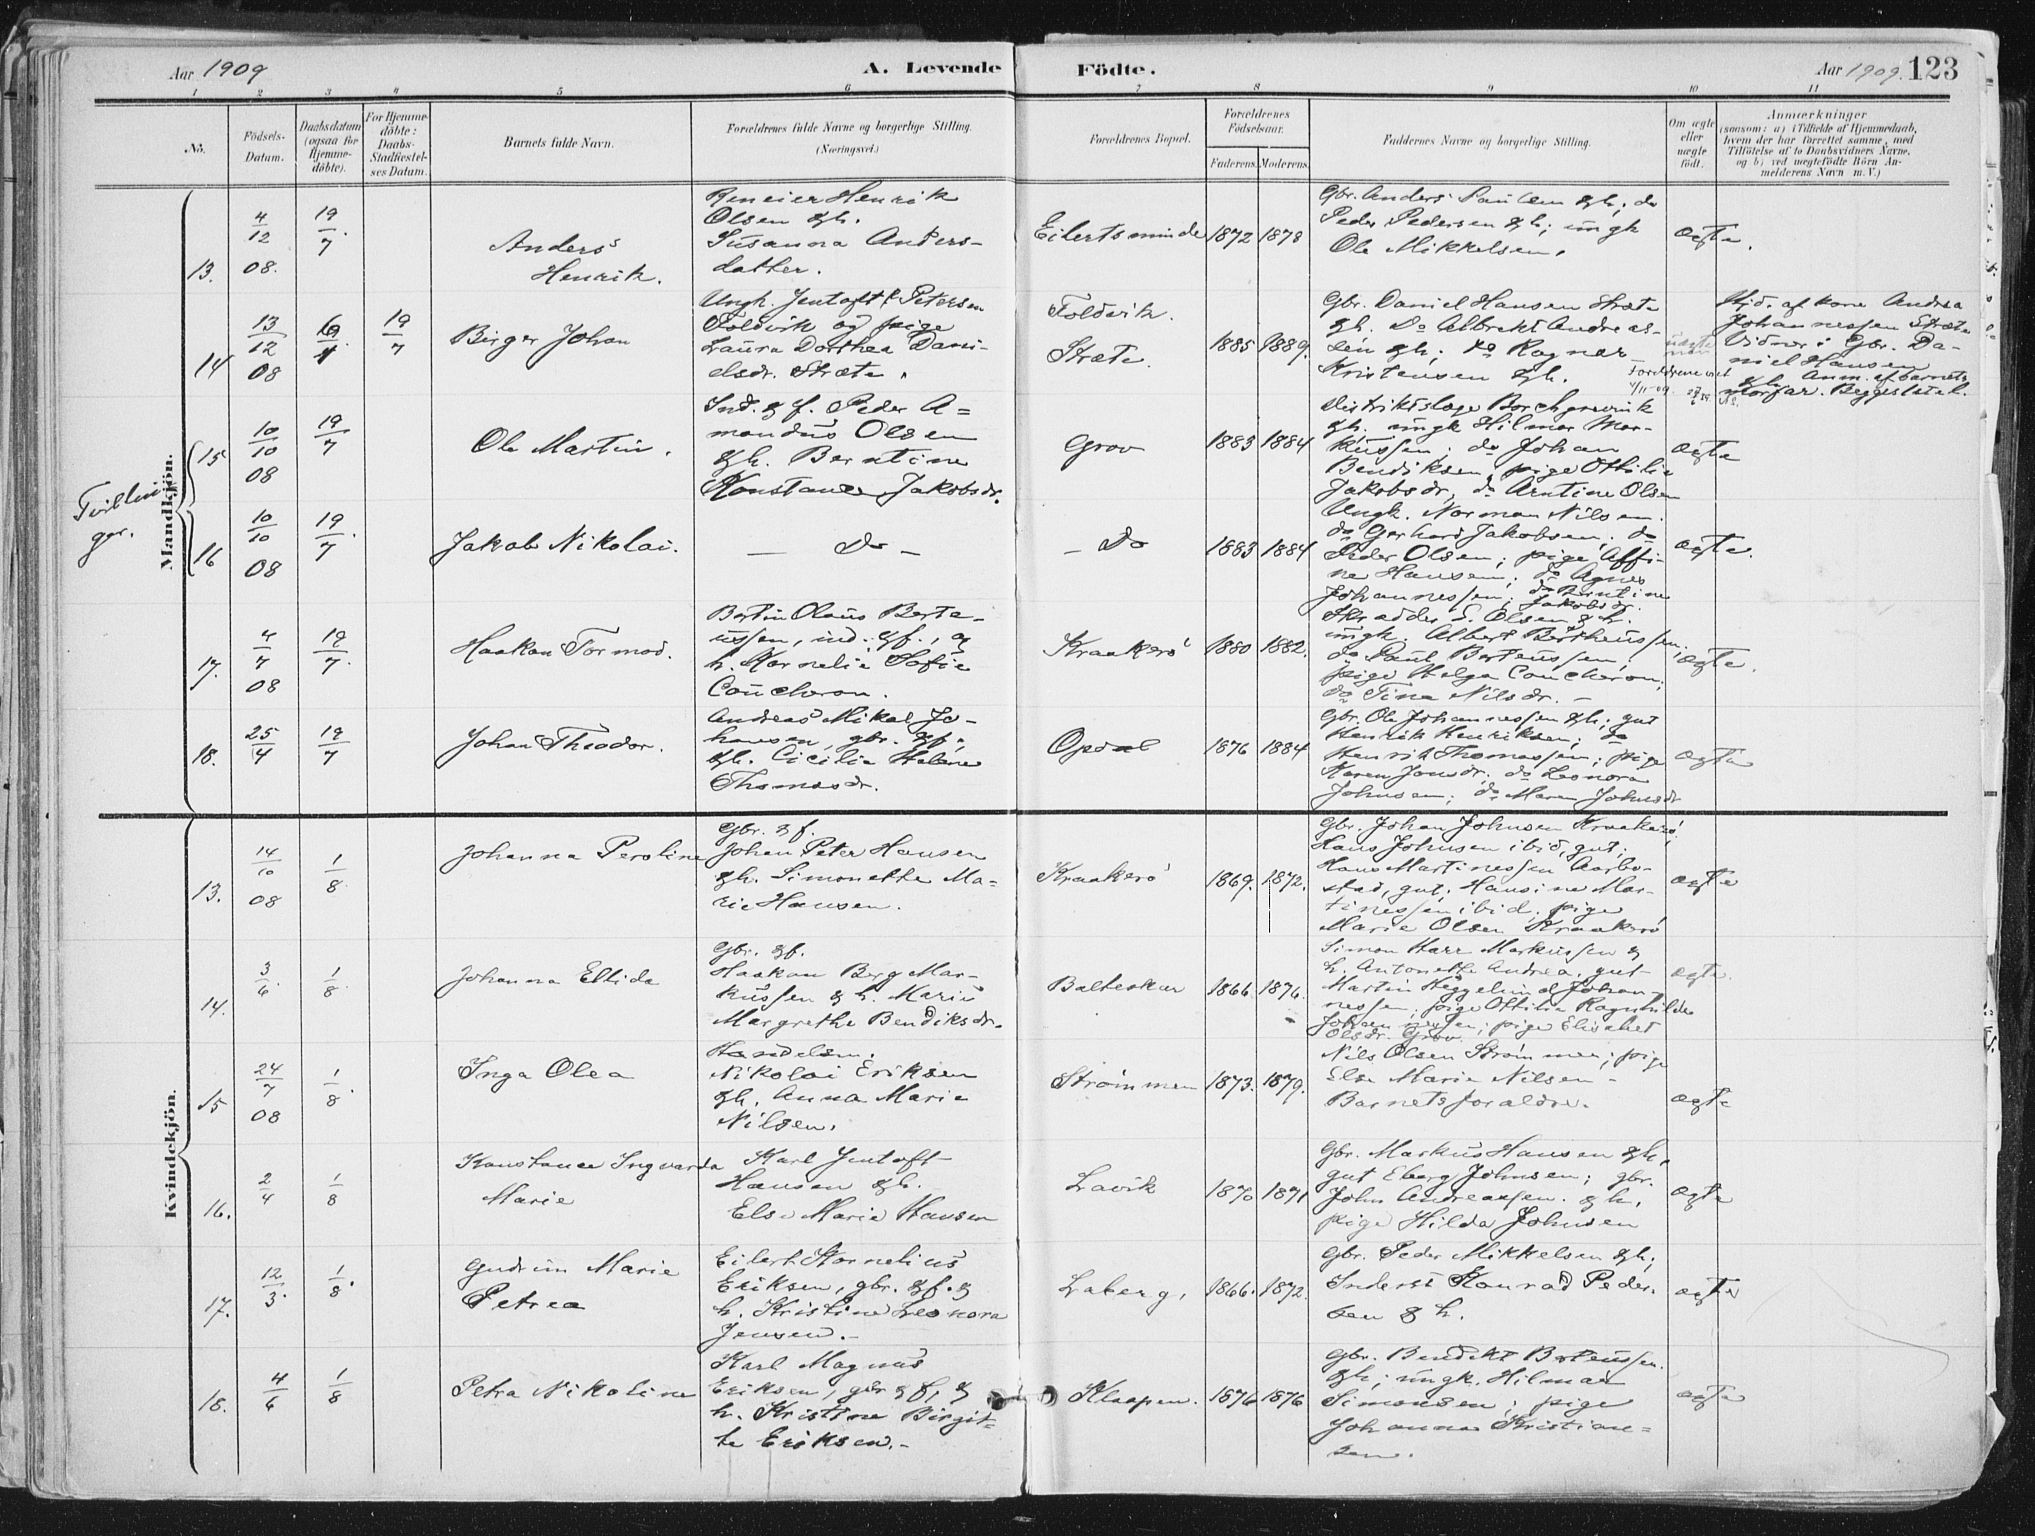 Aar 1909
A. Levende
Födte.
Aar 1909.
123
1 2 3 4 5 6 7 8 9 10 11
No.
Födsels-
Datum.
Daabsdatum
(ogsaa for
Hjemme-
döbte).
For Hjemme-
döbte:
Daabs-
Stadfæstel-
ses Datum.
Barnets fulde Navn.
Forældrenes fulde Navne og borgerlige Stilling.
(Næringsvei.)
Forældrenes Bopæl.
Forældrenes
Födselsaar.
Faderens.
Moderens.
Faddernes Navne og borgerlige Stilling.
Om ægte
eller
uægte
födt.
Anmærkninger
(saasom: a) i Tilfælde af Hjemmedaab,
hvem der har forrettet samme, med
Tilföielse af to Daabsvidners Navne,
og b) ved uægtefödte Börn An-
melderens Navn m. V.)
Mandkjön.
13.
4/12
08.
19/7.
Anders
Henrik.
Reneier Henrik
Olsen &h.
Susanna Anders-
datter.
Eilertsminde
1872
1878
Gbr. Anders Paulsen &h; do
Peder Pedersen &h; ungk
Ole Mikkelsen.
ægte.
14
13/12
08
19/7
Birger Johan
Ungk. Jentoft P. Petersen
Foldvik og pige
Laura Dorthea Dani-
elsdr. Stræte.
Foldvik.
Stræte.
1885
1889.
Gbr. Daniel Hansen Stræte
&h. Do Albrekt Andreas-
sen &h; do Ragnar
Kristensen &h.
Forældrene viet
Hjd. af kone Andrea
Johannessen Stræte
Vidner: Gbr. Da-
niel Hansen
&h. Anm. af barnets
morfar.
Tvillin-
ger.
15
10/10
08
19/7
Ole Martin.
Ind. & f. Peder A=
mandus Olsen
&h. Berntine
Konstance Jakobsdr.
Grov
1883
1884
Distriktslæge Borchgrevink
&h. ungk Hilmar Mar-
kussen; do Johan
Bendiksen, pige Othilie
Jakobsdr, do Arntine Olsen
ægte
16
10/10
08
19/7
Jakob Nikolai.
— Do —
— Do
1883
1884
Ungk. Norman Nilsen.
do Gerhard Jakobsen; do
Peder Olsen; pige Affi-
ne Hansen; do Agnes
Johannessen; do Berntine
Jakobsdr.
ægte.
17.
4/7
08
19/7.
Haakon Tormod.
Bertin Olaus Berte-
ussen, ind. &f., og
h. Kornelie Sofie
Coucheron.
Kraakerö
1880
1882.
Skrædder S. Olsen &h.
ungk. Albert Bertheussen.
do Paul Berteussen,
pige Helga Coucheron;
do Tina Nilsdr. –
ægte.
18.
25/4
19/7
Johan Theodor.
Andreas Mikal Jo-
hansen, gbr. &f,
&h. Cicilie Helene
Thomasdr.
Opdal
1876
1884
Gbr. Ole Johannessen &h; gut
Henrik Henriksen; do
Henrik Thomassen; pige
Karen Jonsdr; do Leonora
Johnsen; do Maren Johnsdr
ægte
Kvindekjön.
13.
14/10
08
1/8.
Johanna Peroline
Gbr. &f.
Johan Peter Hansen
&h. Simonette Ma=
rie Hansen.
Kraakerö
1869.
1872.
Gbr. Johan Johnsen Kraakerö;
Hans Johnsen ibid, gut;
Hans Martinessen Aarbo-
stad, gut; Hansine Mar-
tinessen ibid; pige
Marie Olsen Kraakerö
ægte
14.
3/6.
1/8.
Johanna Ellida
Gbr. &f.
Haakon Berg Mar-
kussen & h. Marie
Margrethe Bendiksdr.
Balteskar
1866.
1876.
Simon Harr Markussen &
h. Antonette Andrea, gut-
Martin Heggelund Johan-
nessen; pige Ottilie Ragnhilda
Johannessen; pige Elisabet
Olsdr. Grov.
ægte.
15
24/7
08
1/8.
Inga Olea
Handelsm.
Nikolai Eriksen
&h. Anna Marie
Nilsen.
Strömmen
1873.
1879.
Nils Olsen Strömmen; pige
Else Marie Nilsen –
Barnets forældre.
ægte
16.
2/4
1/8
Konstance Ingvarda
Marie
Karl Jentoft
Hansen &h.
Else Marie Hansen
Lavik
1870
1871
Gbr. Markus Hansen &h,
gut Eberg Johnsen; gbr.
John Andreassen. &h,
pige Hilda Johnsen
ægte
17.
12/3.
1/8.
Gudrun Marie
Petrea
Eilert Kornelius
Eriksen, gbr. &f. &
h. Kristine Leonora
Jensen. –
Laberg,
1866.
1872.
Gbr. Peder Mikkelsen &h;
Inderst Konrad Peder-
sen & h.
ægte
18.
4/6
1/8
Petra Nikoline
Karl Magnus
Eriksen, gbr &f, &
h. Kristine Birgit-
te Eriksen. –
Klaapen.
1876
1876
Gbr. Bendikt Berteussen.
&h; ungk. Hilmar
Simonsen; pige
Johanna Kristian=
sen.
ægte